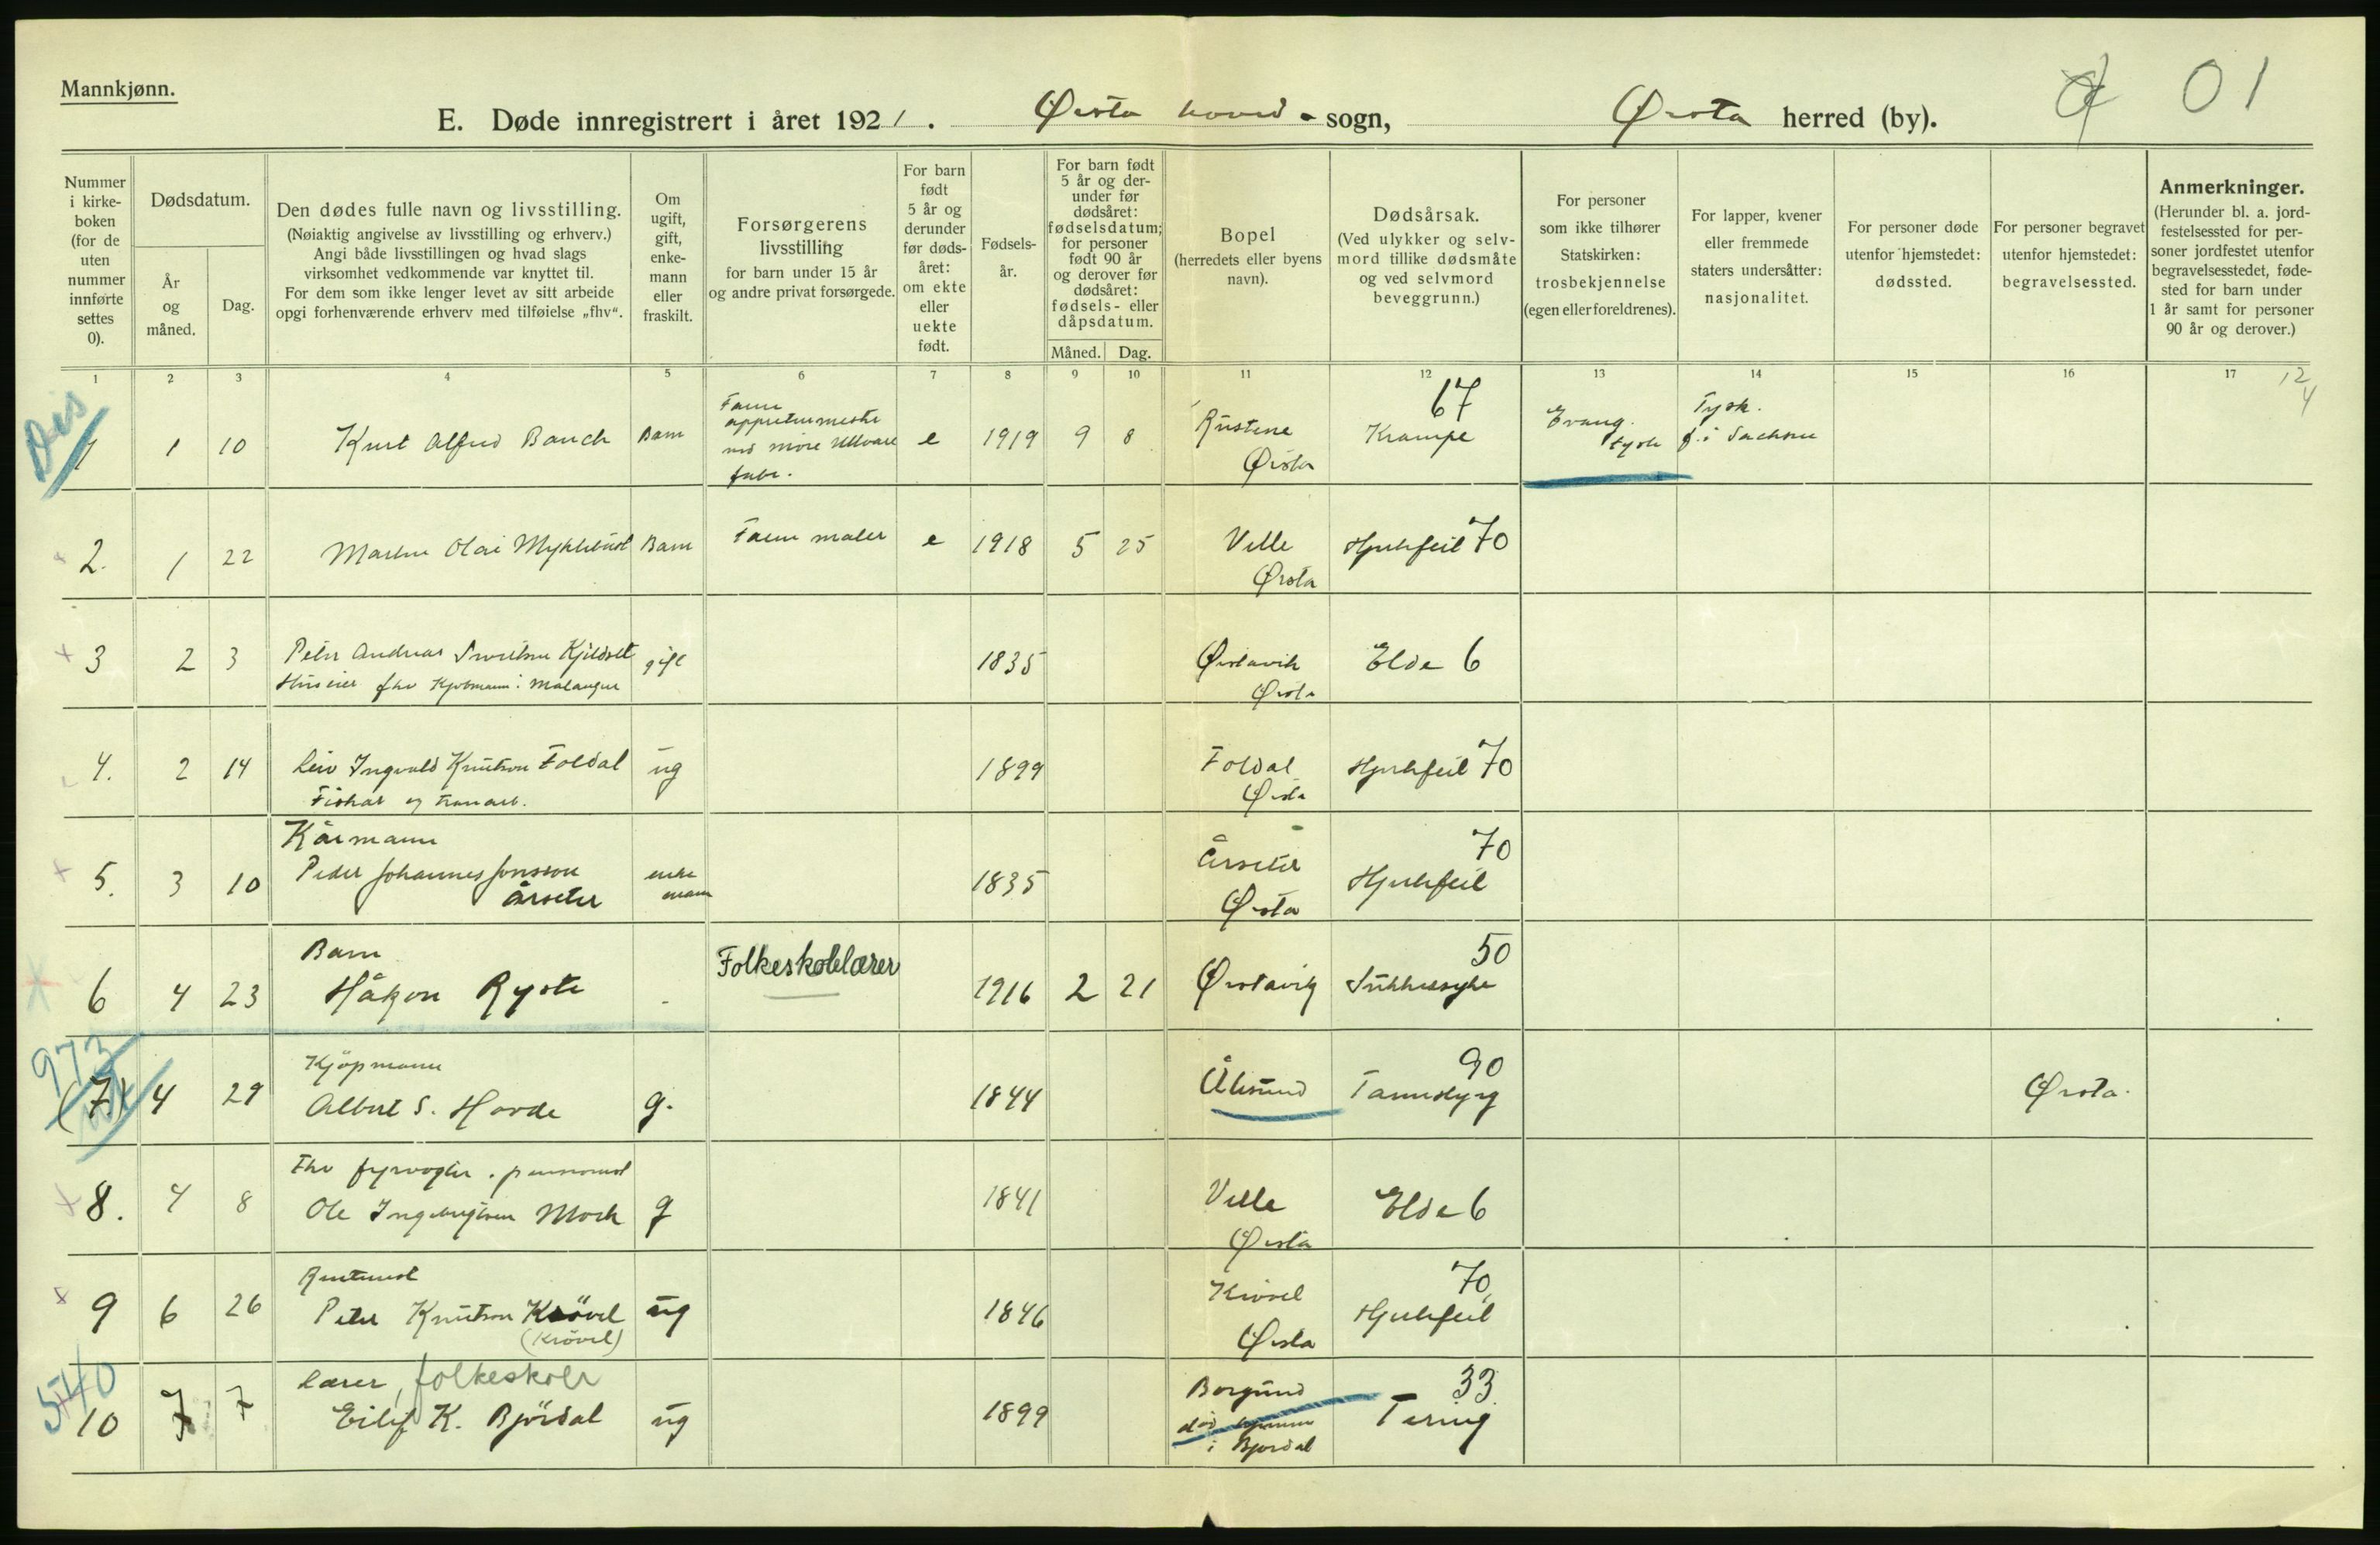 Mannkjønn.
E. Døde innregistrert i året 1921. Ørsta hoved - sogn, Ørsta herred (by).
01
Nummer i kirkeboken (for de uten nummer innførte settes 0).
Dødsdatum.
År og måned.
Dag.
Den dødes fulle navn og livsstilling.
(Nøiaktig angivelse av livsstilling og erhverv.)
Angi både livsstillingen og hvad slags
virksomhet vedkommende var knyttet til.
For dem som ikke lenger levet av sitt arbeide
opgi forhenværende erhverv med tilføielse „fhv“.
Om ugift, gift, enkemann eller fraskilt.
Forsørgerens livsstilling
for barn under 15 år
og andre privat forsørgede.
For barn født 5 år og derunder før dødsåret: om ekte eller uekte født.
Fødselsår.
For barn født 5 år og derunder før dødsåret: fødselsdatum; for personer født 90 år og derover før dødsåret: fødsels- eller dåpsdatum.
Måned. Dag.
Bopel
(herredets eller byens navn).
Dødsårsak.
(Ved ulykker og selvmord tillike dødsmåte og ved selvmord beveggrunn.)
For personer som ikke tilhører Statskirken:
trosbekjennelse
(egen eller foreldrenes).
For lapper, kvener eller fremmede staters undersåtter:
nasjonalitet.
For personer døde utenfor hjemstedet:
dødssted.
For personer begravet utenfor hjemstedet:
begravelsessted.
Anmerkninger.
(Herunder bl. a. jordfestelsessted for personer jordfestet utenfor begravelsesstedet, fødested for barn under 1 år samt for personer 90 år og derover.)
1 2 3 4 5 6 7 8 9 10 11 12 13 14 15 16 17
12/4
1 1 10 Kurt Alfred Bauch Barn e 1919 9 8 Rustene Ørsta Krampe 67 Evang. tysk Tysk. f. i Sachsen
2. 1 22 Olai Myklebust Barn Faren maler e 1918 5 25 Velle Ørsta Hjertefeil 70
3 2 3 Peter Andreas Kjeldset gift 1835 Ørstavik Ørsta Elde 6
Huseier fhv
4. 2 14 Leiv Ingvald Knutson Foldal ug 1899 Foldal Ørsta Hjertefeil 70
Fisker og
5. 3 10 Kårmann
Peder Johannes Jonsson Årseter enkemann 1835 Årseter Ørsta Hjertefeil 70
6 4 23 Barn
Håkon Ryste - Folkeskolelærer 1916 2 21 Ørstavik Sukkersyke 50
973
(7) 4 29 Kjöpmann
Albert S. Hovde g. 1844 Ålesund Tarmslyng 90 Ørsta.
8. 4 8 Fhv fyrvogter. pensionist
Ole Ingebrigtsen Mork g 1841 Velle Ørsta Elde 6
9 6 26 Rentenist
Peter Knutson Krövel ug 1846 Krövel Ørsta Hjertefeil 70
(Krövel)
540
10 7 7 Lærer, folkeskole
Eilif K. Björdal ug 1899 Borgund död hjemme i Bjørdal Tæring 33